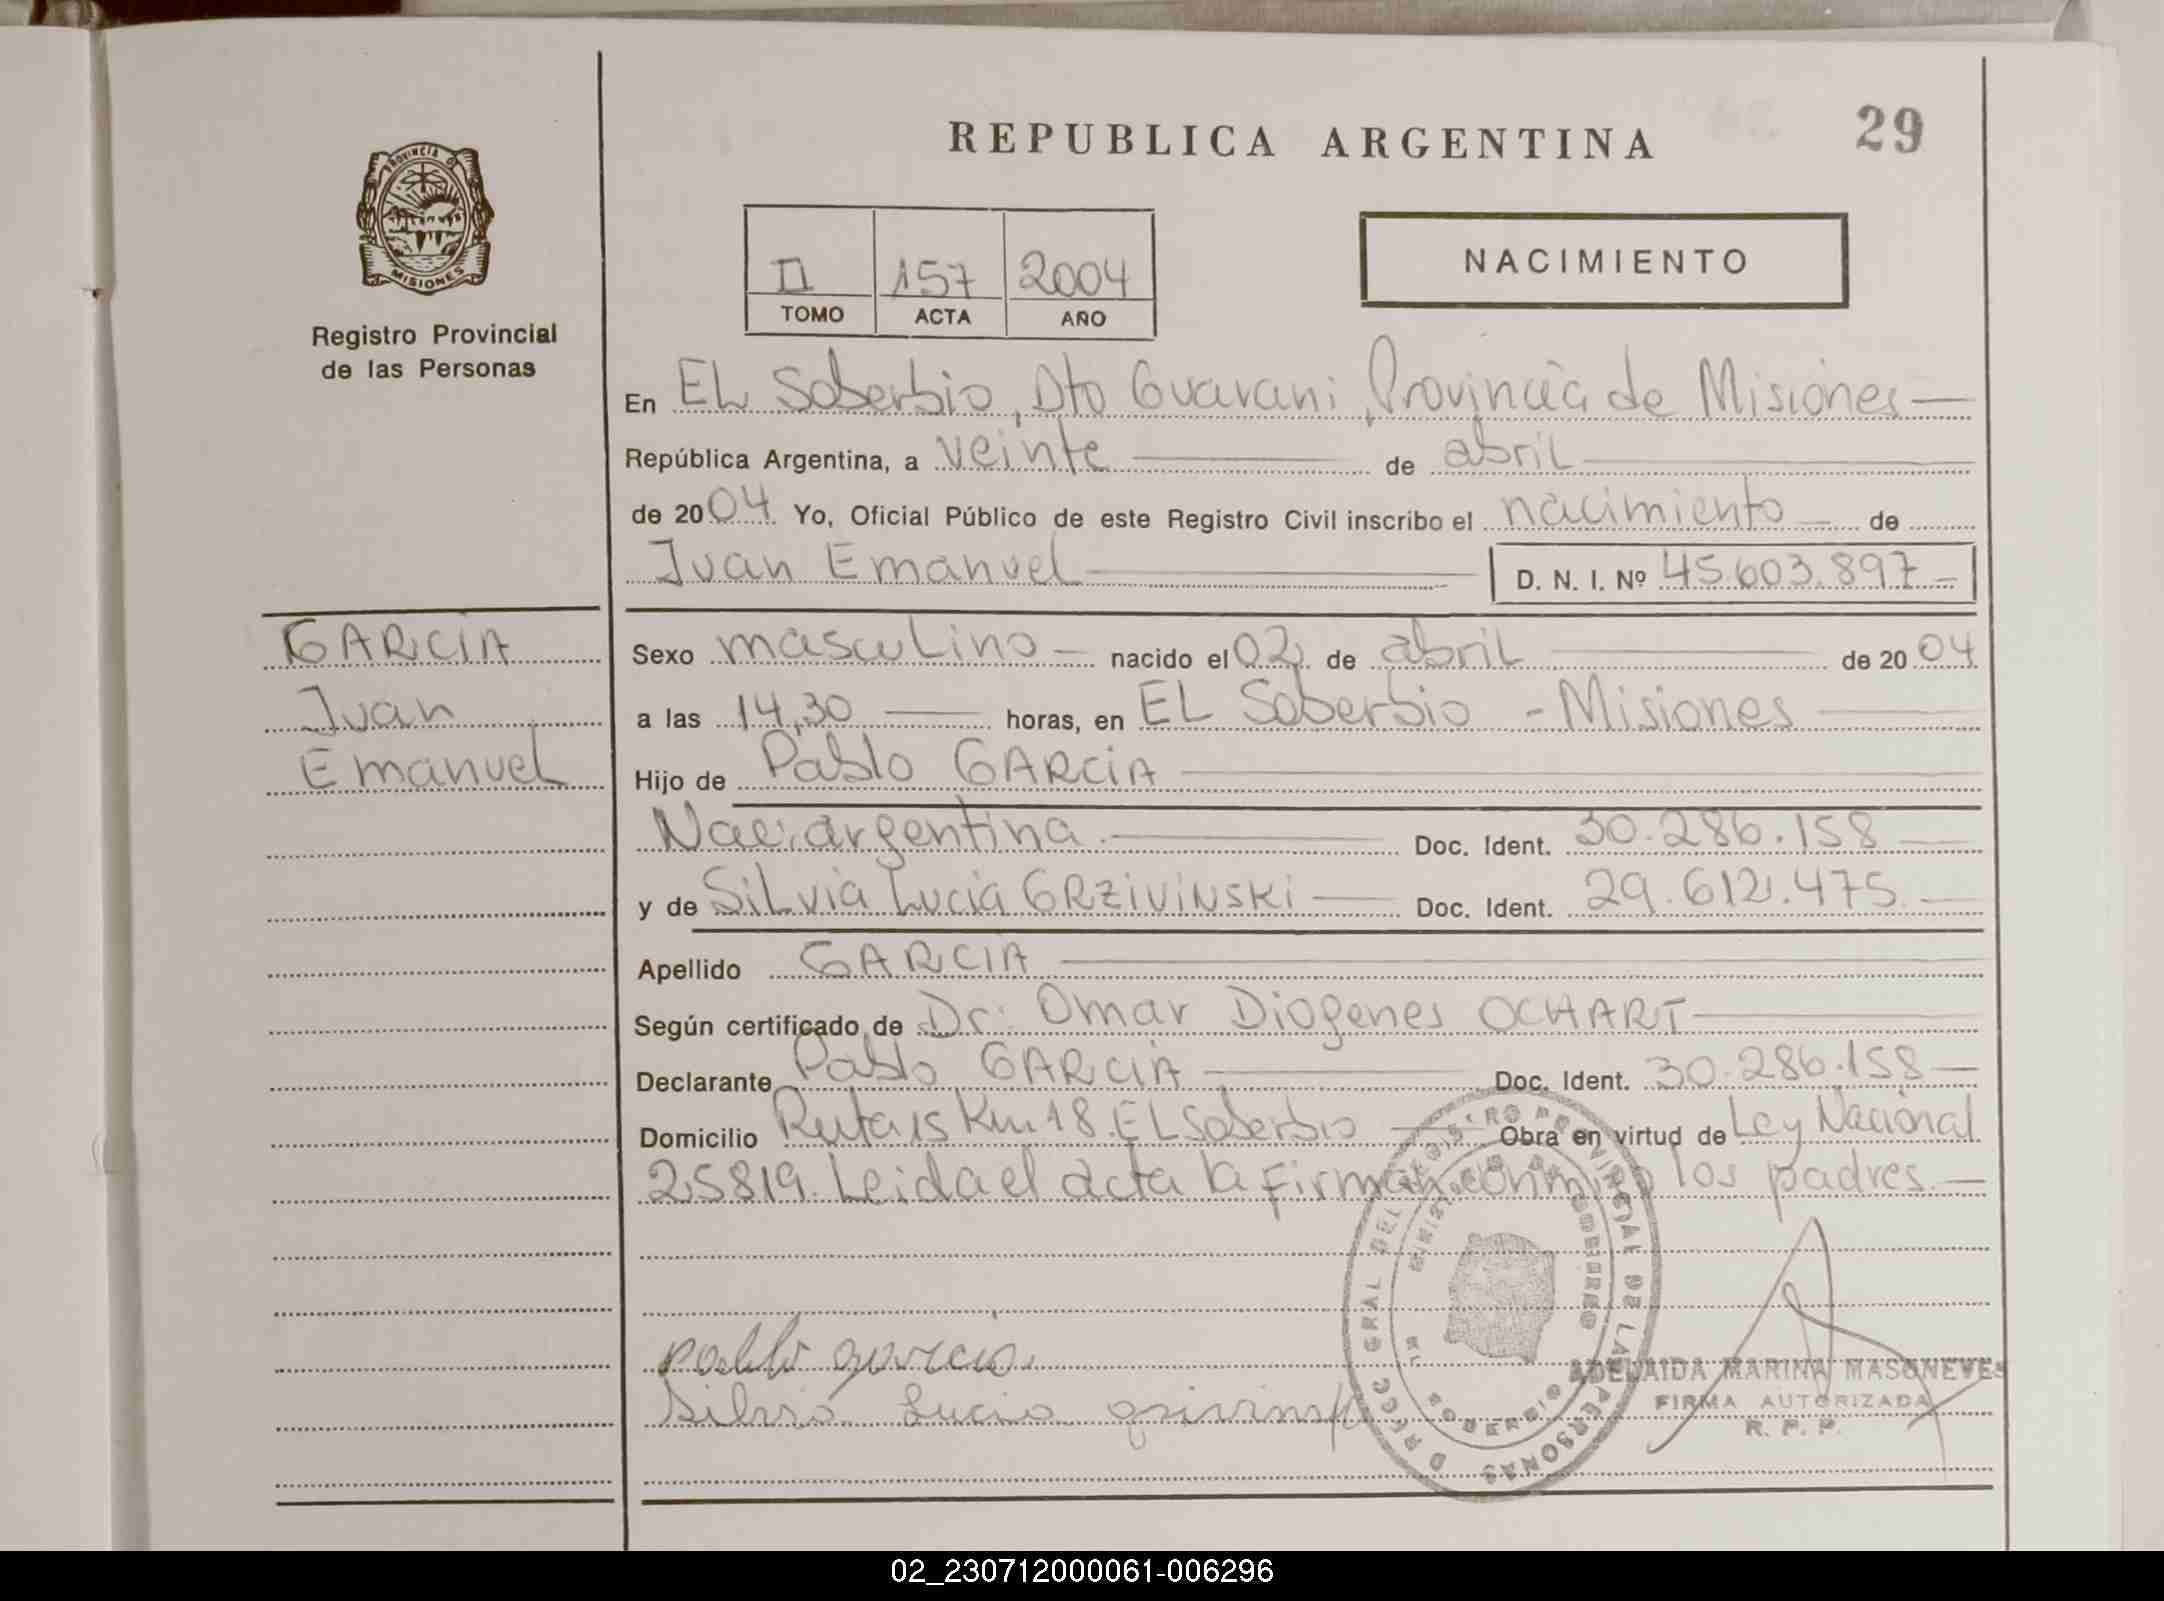 REPUBLICA ARGENTINA
29
PROVINCIA DE
MISIONES
Registro Provincial
de las Personas
II 157 2004
TOMO ACTA AÑO
NACIMIENTO
En EL Soberbio, Dto Guarani, Provincia de Misiones
República Argentina, a veinte de abril
de 2004 Yo, Oficial Público de este Registro Civil inscribo el nacimiento de
Juan Emanuel D. N. I. Nº 45.603.897
GARCIA
Juan
Emanuel
Sexo masculino nacido el 02 de abril de 2004
a las 14,30 horas, en EL Soberbio - Misiones
Hijo de Pablo GARCIA
Nac. argentina. Doc. Ident. 30.286.158
y de Silvia Lucia GRZIVINSKI Doc. Ident. 29.612.475.
Apellido GARCIA
Según certificado de Dr. Omar Diogenes OCHART
Declarante Pablo GARCIA Doc. Ident. 30.286.158
Domicilio Ruta 15 Km 18. EL Soberbio Obra en virtud de Ley Nacional
25819. Leida el acta la firman conmigo los padres.
pablo garcia
Silvia Lucia
DIRECC GRAL DEL REGISTRO PROVINCIAL DE LAS PERSONAS
MINISTERIO DE GOBIERNO
EL SOBERBIO
ADELAIDA MARINA MASONEVES
FIRMA AUTORIZADA
R. P. P.
02_230712000061-006296